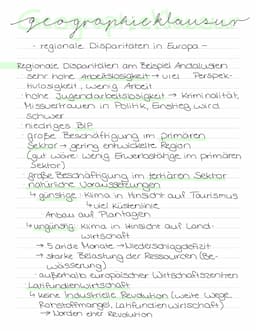 geographieklausur
- regionale Disparitäten in Europa -
Regionale Disparitäten am Beispiel Andalusien
sehr hohe Arbeitslosigkeit → viel Perspek-
tivlosigkeit, wenig Arbeit
hohe Jugendarbeitslosigkeit → Kriminalität,
Missvertrauen in Politik, Einstieg wird
schwer
niedriges BIP
große Beschäftigung im primären
Sektor → gering entwickelte Region
(gut wäre: wenig Erwerbstätige im primären
Sektor)
große Beschäftigung im tertiären Sektor
natürliche Voraussetzungen
↳ günstige: Klima in Hinsicht auf Tourismus
↳ viel Küstenlinie
Anbau auf Plantagen
↳ ungünstig: Klima in Hinsicht auf Land-
wirtschaft
→ 5 aride Monate → Niederschlagdefizit
→ starke Belastung der Ressourcen (Be-
wässerung)
außerhalb europäischer Wirtschaftszentren
Latifundienwirtschaft
↳ keine Industrielle Revolution (weite Wege,
Rohstoffmangel, Latifundienwirtschaft)
→ Norden eher Revolution